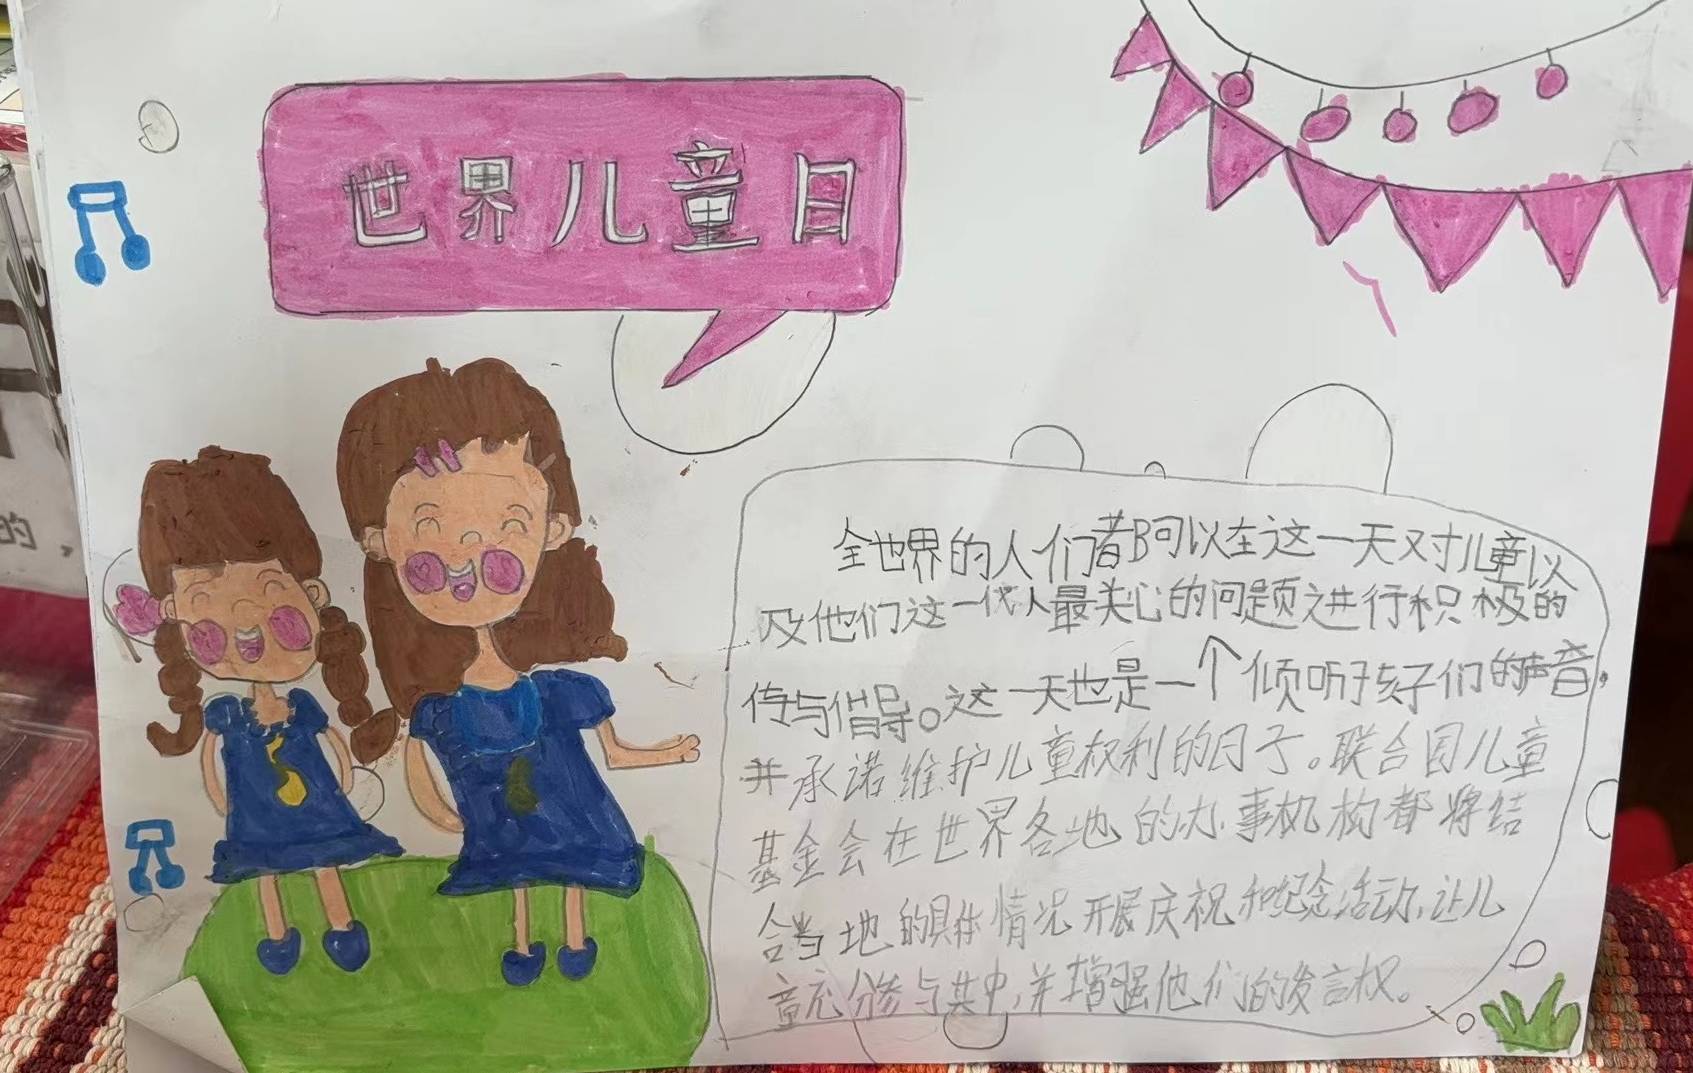 世界儿童日
全世界的人们都可以在这一天对儿童以
及他们这一代人最关心的问题进行积极的
传与倡导。这一天也是一个倾听孩子们的声音，
并承诺维护儿童权利的日子。联合国儿童
基金会在世界各地的办事机构都将结
合当地的具体情况开展庆祝和纪念活动，让儿
童充分参与其中，并增强他们的发言权。
的，